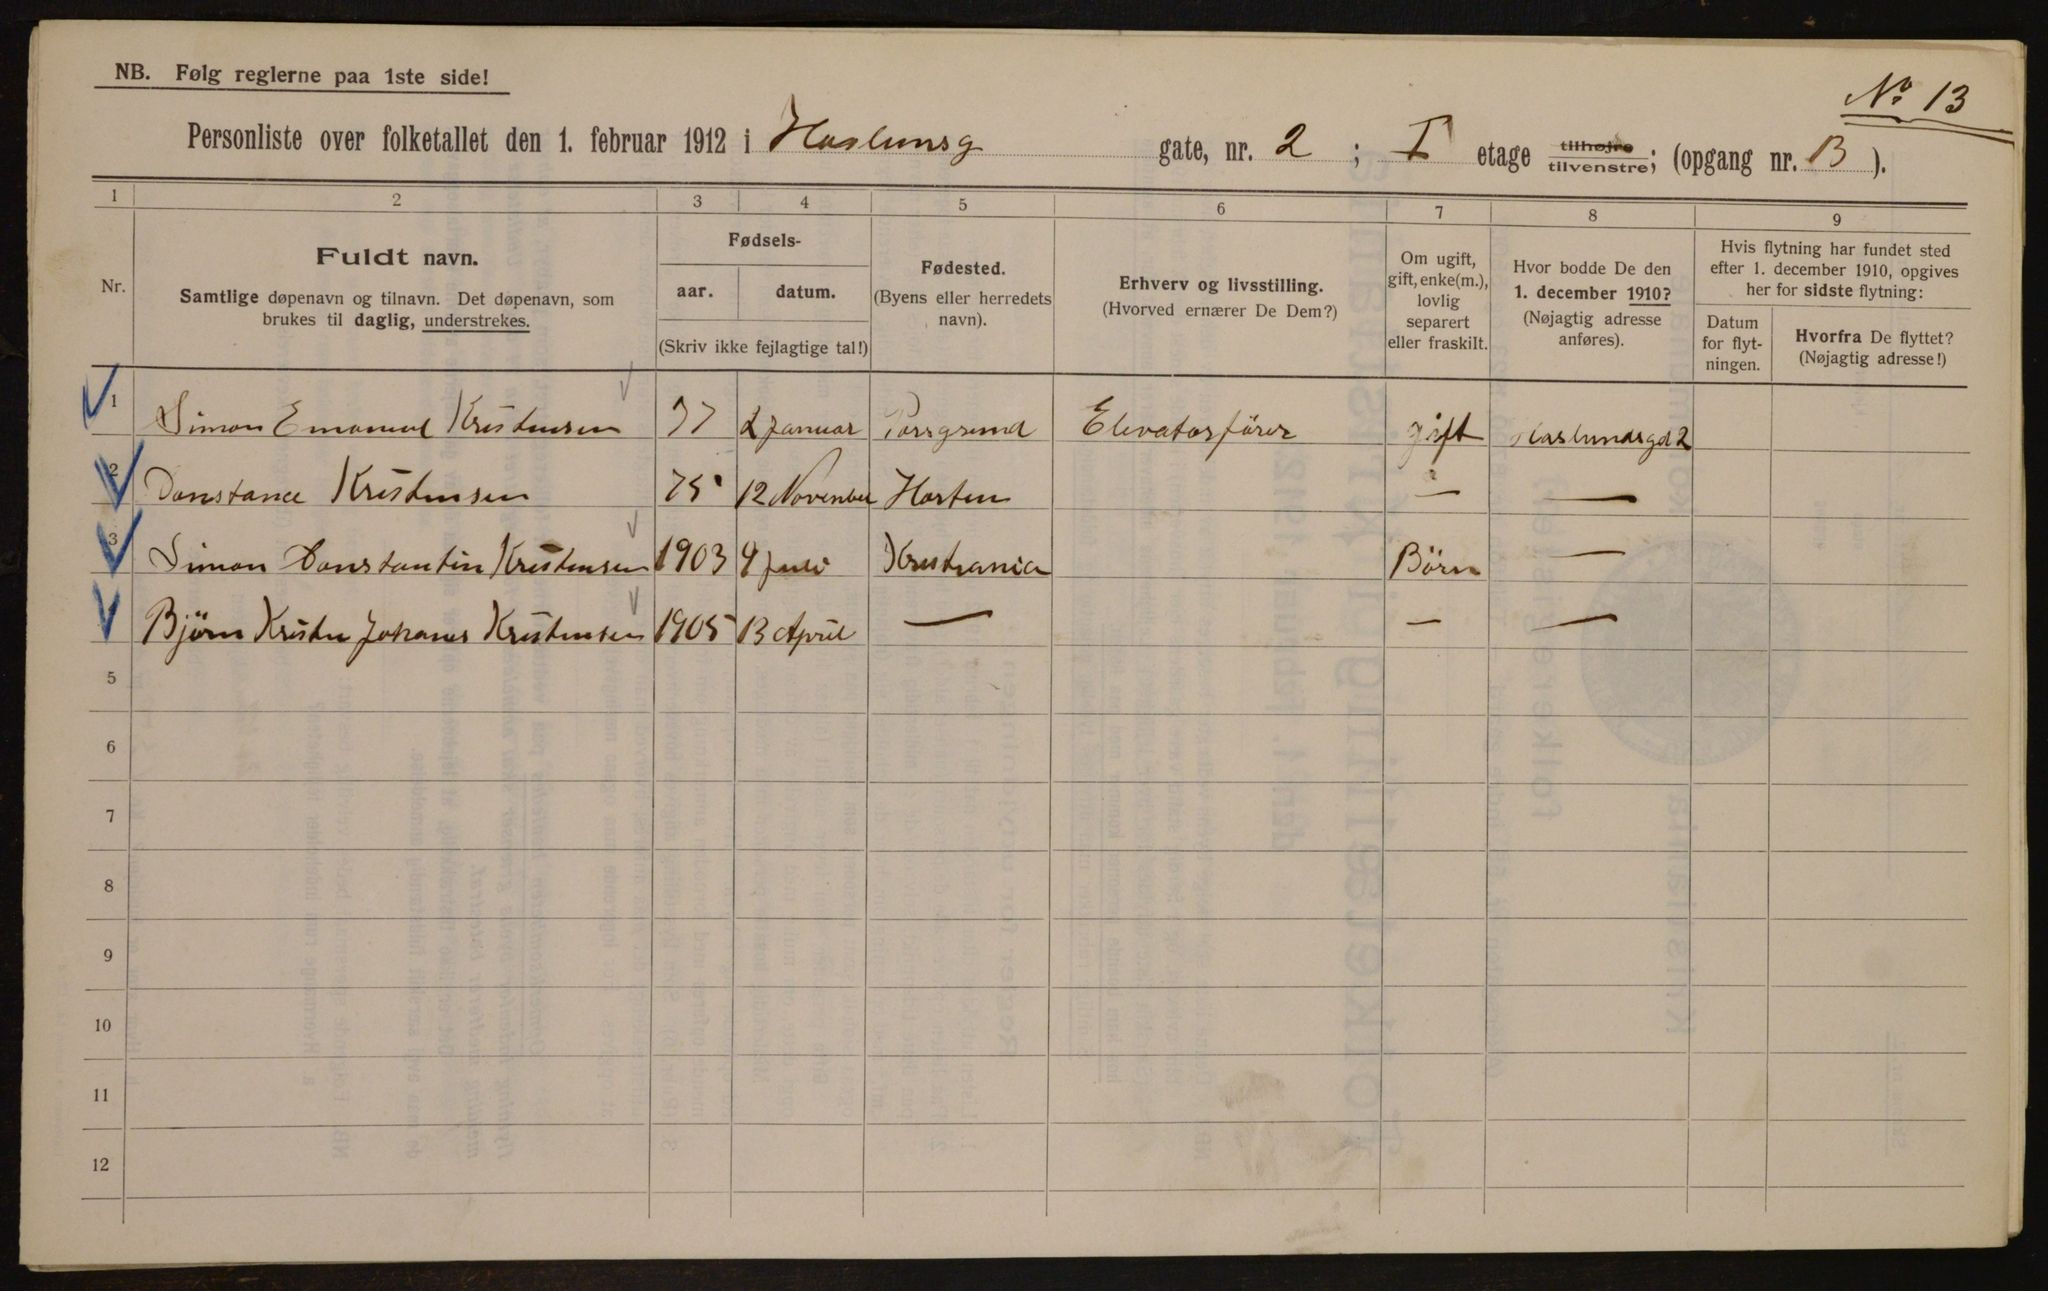 NB. Følg reglerne paa 1ste side!
No 13
Personliste over folketallet den 1. februar 1912 i Haslunsg gate, nr. 2 ; I etage tilhøjre tilvenstre; (opgang nr. B ).
1 2 3 4 5 6 7 8 9
Nr.
Fuldt navn.
Samtlige døpenavn og tilnavn. Det døpenavn, som
brukes til daglig, understrekes.
Fødsels-
aar. datum.
(Skriv ikke fejlagtige tal!)
Fødested.
(Byens eller herredets
navn).
Erhverv og livsstilling.
(Hvorved ernærer De Dem?)
Om ugift,
gift, enke(m.),
lovlig
separert
eller fraskilt.
Hvor bodde De den
1. december 1910?
(Nøjagtig adresse
anføres).
Hvis flytning har fundet sted
efter 1. december 1910, opgives
her for sidste flytning:
Datum
for flyt-
ningen.
Hvorfra De flyttet?
(Nøjagtig adresse!)
1 Simon Emanuel Kristensen 77 2 Januar Porsgrund Elevatorfører gift Haslundsgd 2
2 Constance Kristensen 75 12 November Horten — —
3 Simon Constantin Kristensen 1903 9 Juli Kristiania Børn —
Bjørn Kristen Johanes Kristensen 1905 13 April — — —
5
6
7
8
9
10
11
12